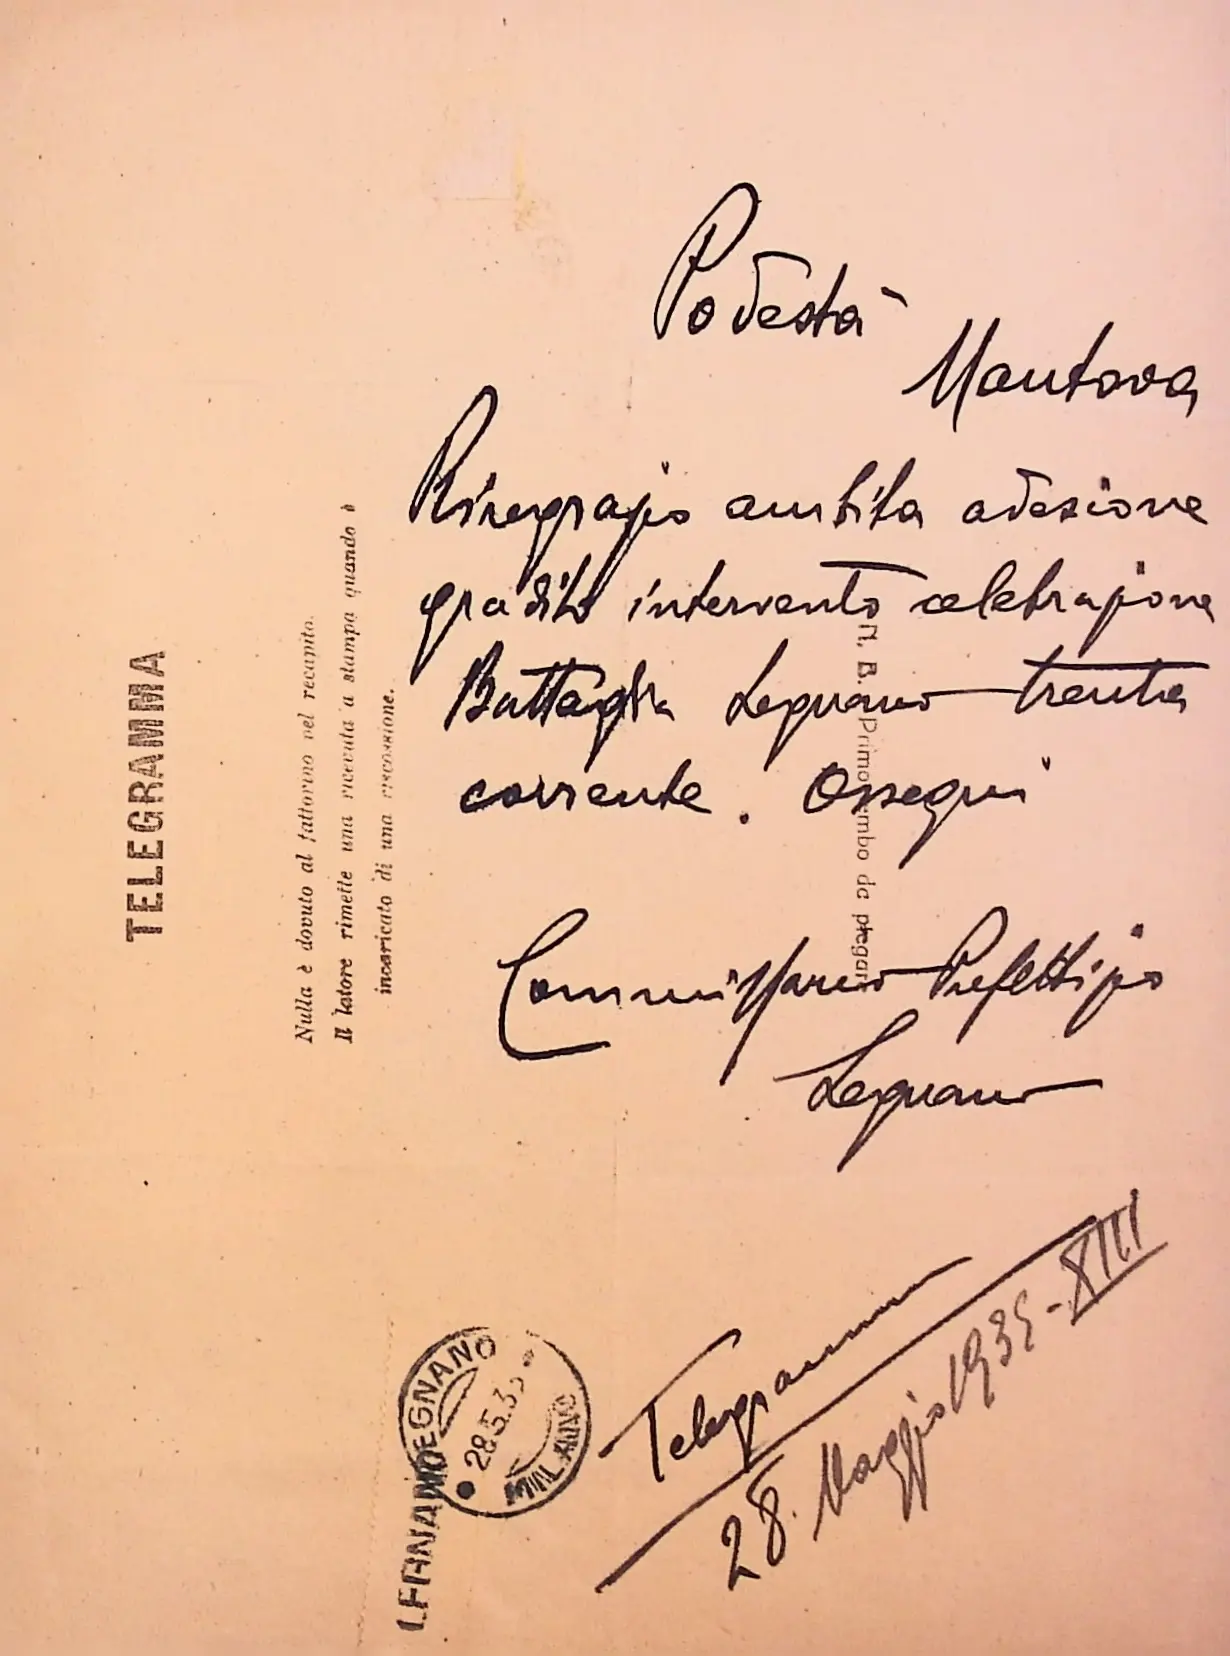 Podestà
Mantova
Ringrazio ambita adesione
gradito intervento celebrazione
Battaglia Legnano trenta
corrente. Ossequi
Commissario Prefettizio
Legnano
Telegramma
28. Maggio 1935-XIII
TELEGRAMMA
Nulla è dovuto al fattorino pel recapito.
Il latore rimette una ricevuta a stampa quando è
incaricato di una riscossione.
N. B. Primo lembo da piegare
LEGNANO
28.5.35
MILANO
LEGNANO